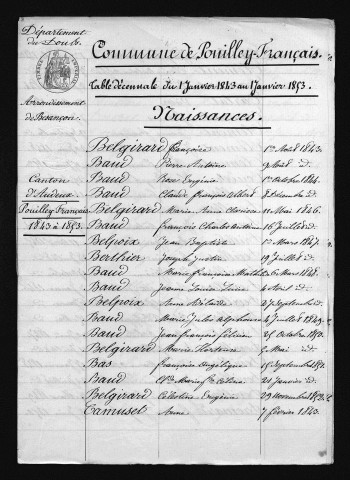 Département
du Doubs.
Arrondissement
de Besançon.
Canton
d'Audeux
Pouilley Français
1843 à 1853.
Commune de Pouilley-Français.
Table décennale du 1 Janvier 1843 au 1 Janvier 1853.
Naissances.
Belgirard françoise 1er Août 1843.
Baud Pierre Antoine 9 Août id.
Baud Rose Eugénie 1er Octobre 1844.
Baud Claude françois Albert 8 Décembre id.
Belgirard Marie Anna 11 Mai 1846.
Baud françois Charles Antoine 16 Juillet id.
Belpoix Jean Baptiste 1er Mars 1847.
Berthier Joseph Justin 19 Juillet id.
Baud Marie françoise Mathilde 6 Mars 1848.
Baud Jeanne Louise 4 Avril id.
Belpoix Anne Adélaïde 27 Septembre id.
Baud Marie Julie Alphonsine 4 Juillet 1849.
Baud Jean françois félicien 25 Octobre 1850.
Belgirard Marie Hortense 5 Mai id.
Bas françoise Angélique 15 Septembre 1851.
Baud Marie Célina 21 Janvier id.
Belgirard Célestine Eugénie 29 novembre 1852.
Camuset Anne 7 février 1843.